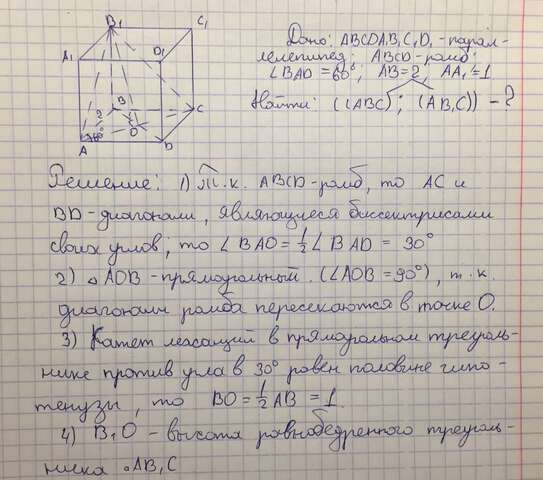 B₁
C₁
A₁
D₁
2
B
C
60°
O
A
D
Дано: ABCDA₁B₁C₁D₁ - парал-
лелепипед; ABCD - ромб;
∠BAD = 60°; AB = 2, AA₁ = 1
Найти: ((ABC); (AB₁C)) - ?
Решение: 1) Т.к. ABCD - ромб, то AC и
BD - диагонали, являющиеся биссектрисами
своих углов, то ∠BAO = ½∠BAD = 30°
2) △AOB - прямоугольный. (∠AOB = 90°), т.к.
диагонали ромба пересекаются в точке O.
3) Катет лежащий в прямоугольном треуголь-
нике против угла в 30° равен половине гипо-
тенузы, то BO = ½ AB = 1
4) B₁O - высота равнобедренного треуголь-
ника AB₁C